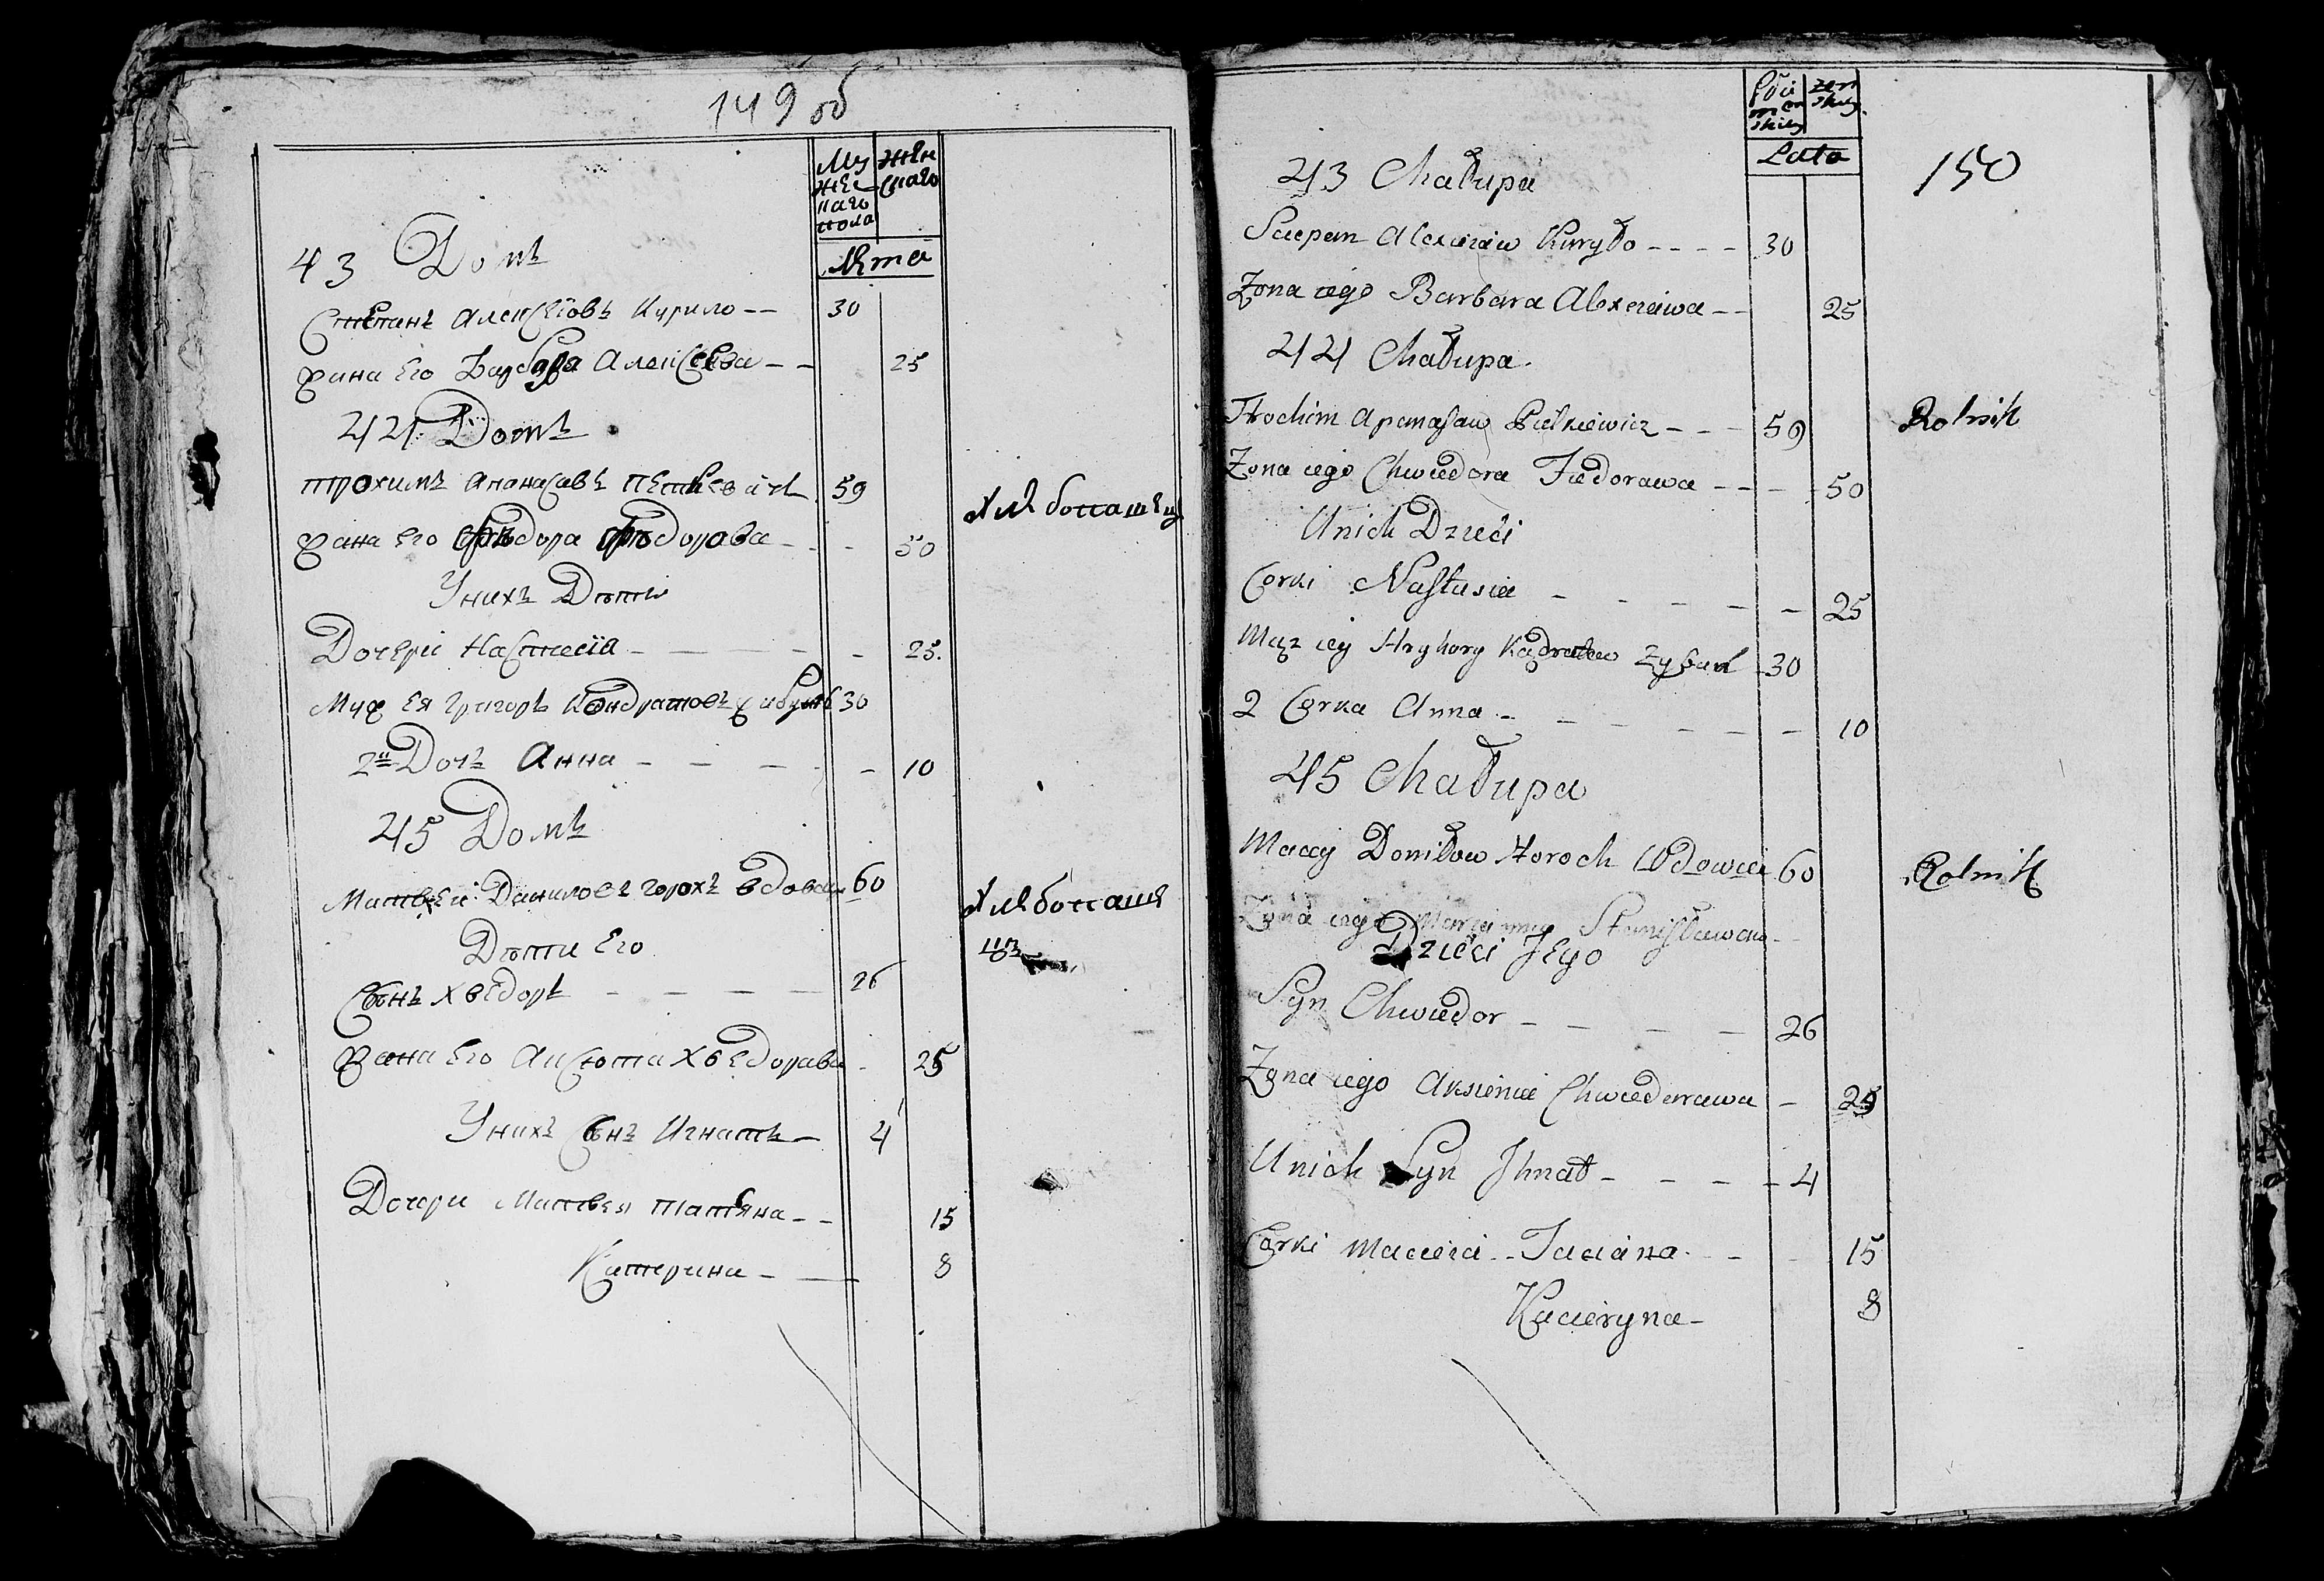 149 об
Му
жес
каго
пола
жен
скаго
Лѣта
43 Домъ
Степанъ Алексѣовъ Курило -- 30
Жана Его Барбара Алексеева -- 25
44 Домъ
Трохимъ Апанасавъ Петкевичъ 59
Хлѣбопашец
Жана Его Фѣдора Фѣдорава - - 50
Унихъ Дѣти
Дочери Настасія - - - - 25.
Муж Ея Григоръ Кондратовъ Жибуль 30
2я Дочь Анна - - - - 10
45 Домъ
Матвей Данилович Горохъ Вдовец 60
Хлѣбопаше
цъ
Дѣти Его
Сынъ Хведоръ - - - - 26
Жана Его Аксюта Хведорава - 25
Унихъ Сынъ Игнатъ - 4
Дочери Матвея Татьяна - - 15
Катерина - - 8
Płci
męn
skiey
żen
skiey.
Lata
150
43 Chałupa
Sciepan Alexieiew Kuryło - - - - 30
Zona iego Barbara Alexeiewa - - 25
44 Chałupa.
Trochim Apanasaw Pietkiewicz - - - 59
Rolnik
Zona iego Chwiedora Fiedorawa - - - 50
Unich Dzieci
Corki Nastusia - - - - - 25
Mąz iey Hryhory Kądratew 30
2 Corka Anna - - - - - - 10
45 Chałupa
Maciey Doniłow Horoch Wdowiec 60
Rolnik
Zona iego Maryanna Stanisławowa - -
Dzieci Jego
Syn Chwiedor - - - - 26
Zona iego Aksienia Chwiedorawa - 25
Unich Syn Ihnat - - - - 4
Corki Macieia - - Taciana - - 15
Kacieryna - 8